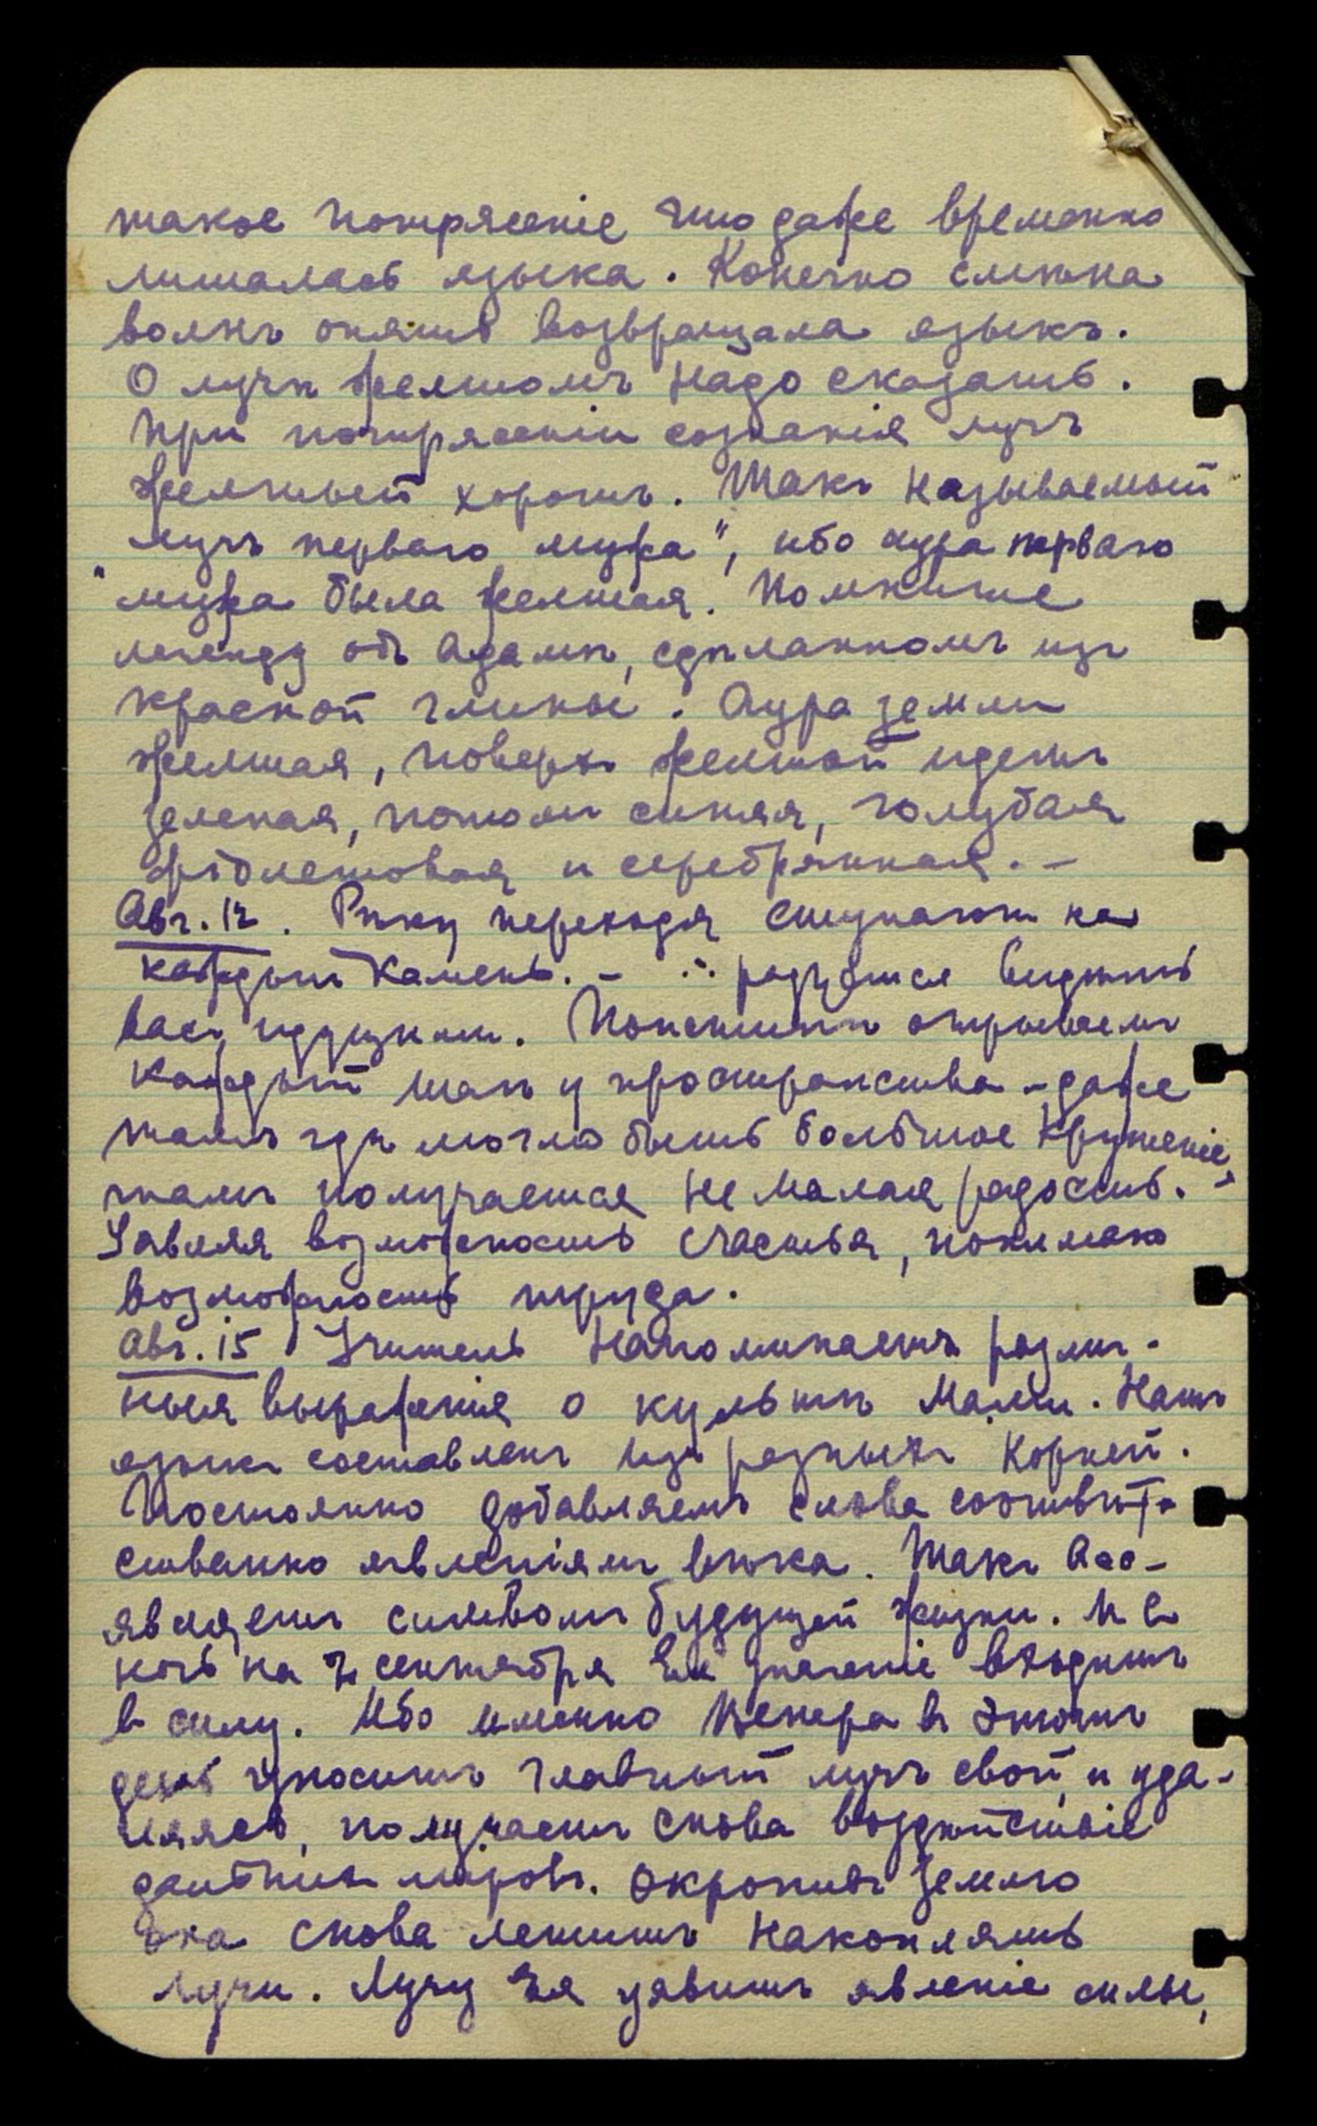 такое потрясеніе что даже временно
лишалась языка. Конечно смѣна
волнъ опять возвращала языкъ.
О лучѣ желтомъ надо сказать.
При потрясеніи сознанія лучъ
желтый хорошъ. Такъ называемый
лучъ перваго мужа", ибо аура перваго
"мужа была желтая. Помните
легенду объ Адамѣ, сдѣланномъ изъ
красной глины. Аура земли
желтая, поверхъ желтой идетъ
зеленая, потомъ синяя, голубая
фіолетовая и серебрянная. –
Авг. 12. Рѣку переходя ступаютъ на
каждый камень. – ∴ радуются видѣть
васъ идущими. Поистинѣ отрываемъ
каждый шагъ у пространства – даже
тамъ гдѣ могло быть большое крушеніе,
тамъ получается не малая радость. –
Уявляя возможность счастья, понимаю
возможность труда.
Авг. 15 Учитель напоминаетъ различ-
ныя выраженія о культѣ Мат. Нашъ
языкъ составленъ изъ разныхъ корней.
Постоянно добавляемъ слова соотвѣт-
ственно явленіямъ вѣка. Такъ
являетъ символъ будущей жизни. И въ
ночь на сентября Ея значеніе входитъ
въ силу. Ибо именно Венера въ этотъ
день уноситъ главный лучъ свой, и уда-
ляясь, получаетъ снова воздѣйствіе
дальнихъ міровъ. Окропивъ землю
она снова летитъ накоплять
лучи. Лучу Ея уявитъ явленіе силы,